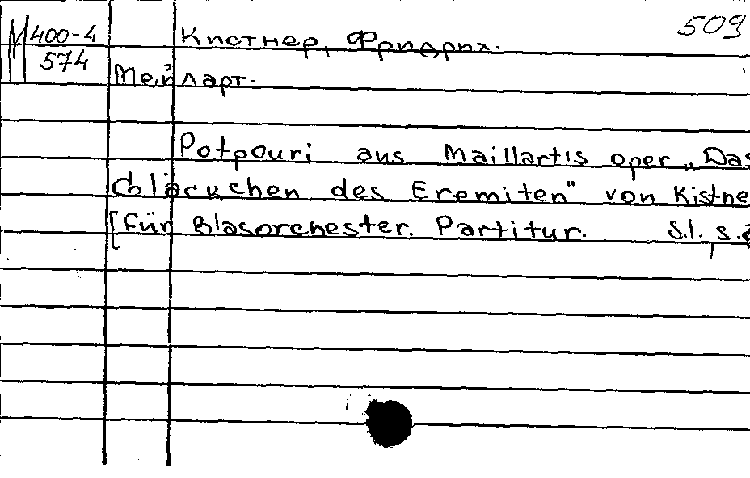 509
М 400-4
574
Кистнер, Фридрих.
Мейларт.
Potpouri aus Maillartis oper „Das
Gläckchen des Eremiten" von Kistne
[für Blasorchester. Partitur. S.l., s.a